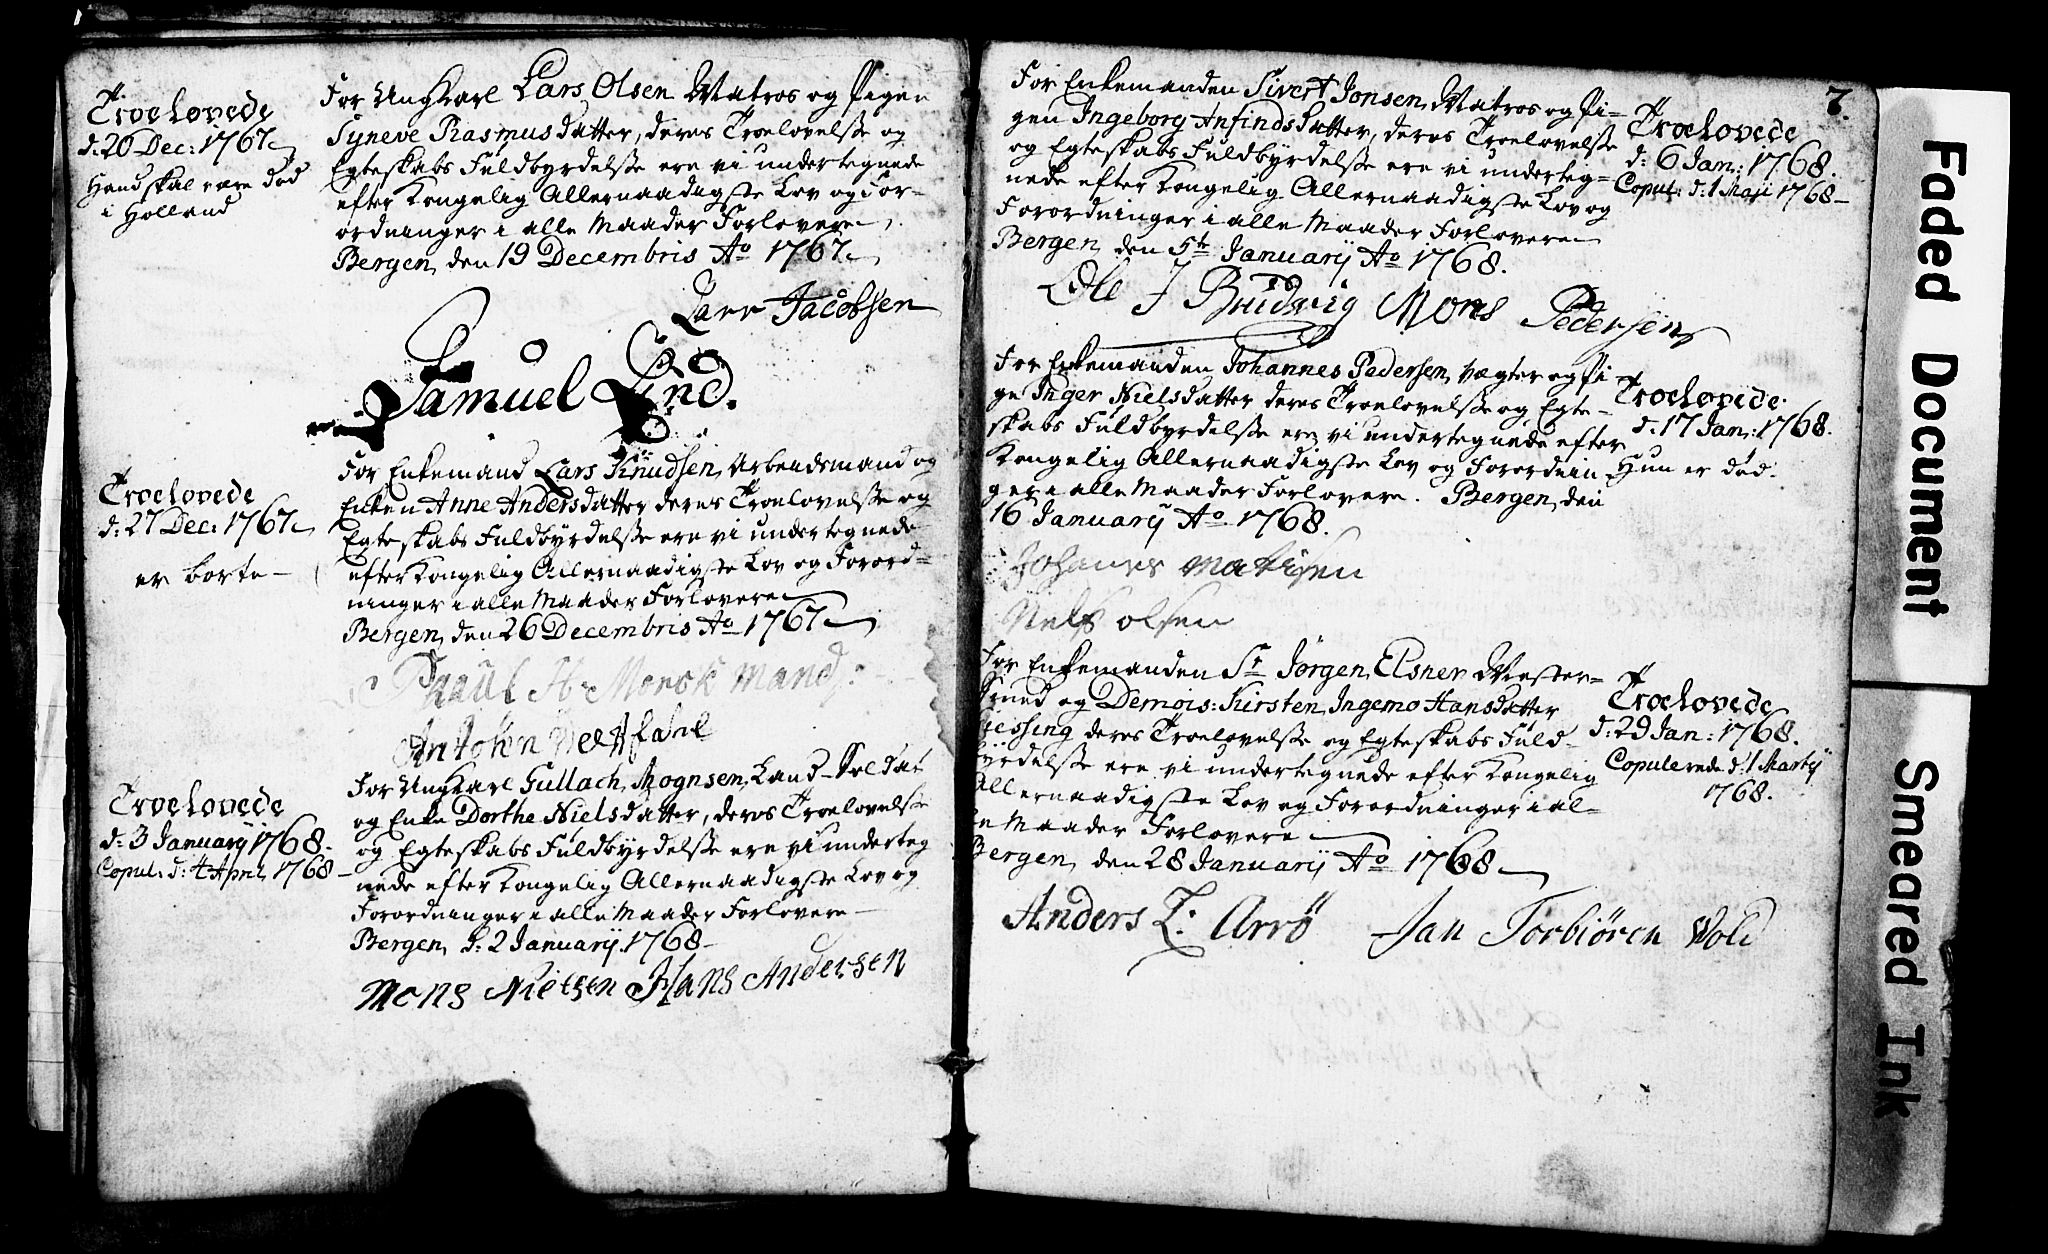 Troelovede
d: 20 Dec: 1767
Hand skal være død
i Holland
For Ungkarl Lars Olsen Matros og Pigen
Syneve Rasmusdatter, deres Troelovelsse og
Egteskabs Fuldbyrdelsse ere vi undertegnede
efter Kongelig Allernaadigste Lov og For-
ordninger i alle Maader Forlovere
Bergen, den 19 Decembris Ao 1767
Larr Jacobsen
Samuel Lind.
Troelovede
d: 27 Dec: 1767
er borte -
For Enkemand Lars Knudsen, Arbeidsmand og
Enken Anne Andersdatter deres Troelovelsse og
Egteskabs Fuldbyrdelsse ere vi undertegnede
efter Kongelig Allernaadigste Lov og Forord=
ninger i alle Maader Forlovere
Bergen, den 26 Decembris Ao 1767
Paaul H: Morck mand:
Antohn
Troelovede
d: 3 January 1768.
Copul: d: 4 April 1768 -
For Ungkarl Gullach Mognsen, Land-Soldat
og Enke Dorthe Nielsdatter, deres Troelovelsse
og Egteskabs Fuldbyrdelsse ere vi underteg
nede efter Kongelig Allernaadigste Lov og
Forordninger i alle Maader Forlovere -
Bergen, d: 2 January 1768 -
Mons Nielsen Hans Andersen
7.
For Enkemanden Sivert Jonsen, Matros og Pi-
gen Ingeborg Anfindsdatter, deres Troelovelsse
og Egteskabs Fuldbyrdelsse ere vi underteg=
nede efter Kongelig Allernaadigste Lov og
Forordninger i alle Maader Forlovere
Bergen, den 5te January Ao 1768.
Troelovede
d: 6 Jan: 1768.
Copul: d: 1 Maji 1768 -
Ole J Mons Pedersen
For Enkemanden Johannes Pedersen, Vægter og Pi
ge Inger Nielsdatter deres Troelovelsse og Egte-
skabs Fuldbyrdelsse ere vi undertegnede efter
Kongelig Allernaadigste Lov og Forordnin
ger i alle Maader Forlovere. Bergen, den
16 January Ao 1768.
Troelovede
d: 17 Jan: 1768.
Hun er død.
Johanes Matisen
Niels olsen
For Enkemanden Sr Jørgen Elsner Mester-
smed og Demois: Kirsten Ingemo Hansdatter
iessing deres Troelovelsse og Egteskabs Fuld-
byrdelsse ere vi undertegnede efter Kongelig
Allernaadigste Lov og Forordninger i al-
le Maader Forlovere
Bergen, den 28 January Ao 1768
Troelovede
d: 29 Jan: 1768.
Copulerede d: 1 Marty
1768.
Anders L: Arrö Jan Torbiören Wold
Faded Document
Smeared Ink